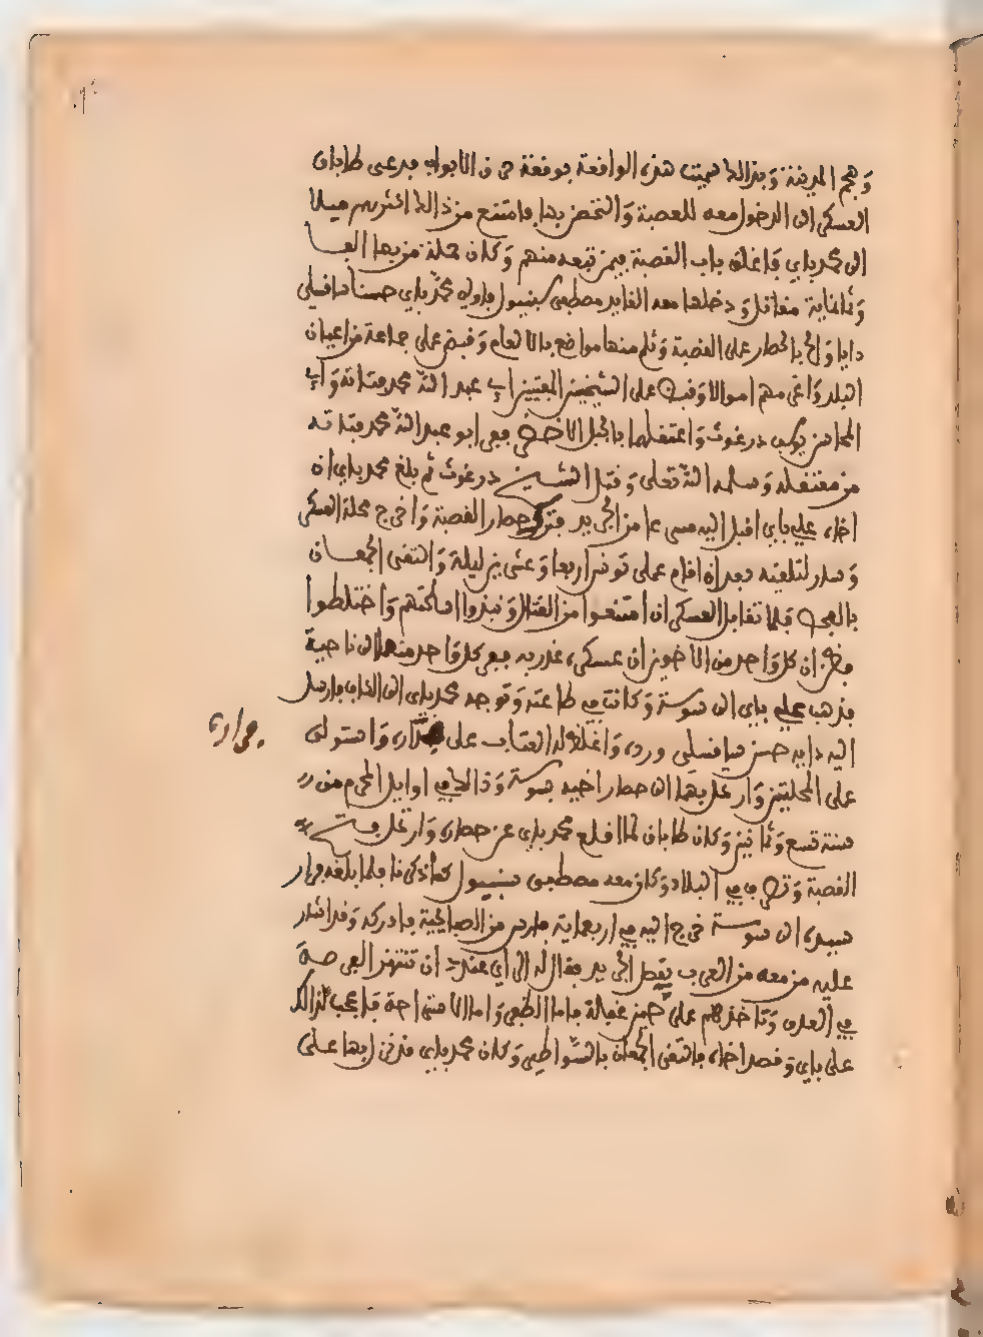 وهجم المدينة وبذالك سميت هذه الواقعة بوقعة حرق الابواب فدعى طاباق
العسكر الى الدخول معه للقصبة والتحصن بها فامتنع من ذالك اكثرهم ميلا
الى محمد باي فاغلق باب القصبة فيمن تبعه منهم وكان جملة من بها الفا
وثمانماية مقاتل ودخلها معه القايد مصطفى سبنيول فاولى محمد باي حسنا ساقسلي
دايا والح بالحصار على القصبة وثلم منها مواضع بالالغام وقبض على جماعة من اعيان
البلد واغرمهم اموالا وقبض على الشيخين المفتيين ابي عبد الله محمد فتاتة وابي
المحاسن يوسف درغوث واعتقلهما بالجبل الاخضر ففر ابو عبد الله محمد فتاتة
من معتقله وسلمه الله تعلى وقتل الشيخ درغوث ثم بلغ محمد باي ان
اخاه علي باي اقبل اليه مسرعا من الجريد فترك حصار القصبة واخرج محلة العسكر
وسار لتلقيه بعد ان اقام على تونس اربعا وعشرين ليلة والتقى الجمعان
بالفحص فلما تقابل العسكران امتنعوا من القتال ونبذوا اماكنهم واختلطوا
فظن كل واحد من الاخوين ان عسكره غدر به ففر كل واحد منهما الى ناحية
فذهب علي باي الى سوسة وكانت في طاعته وتوجه محمد باي الى الكاف فارسل
اليه دايه حسن ساقسلي ورده واغلظ له العتاب على واستولى
فراره
على المحلتين وارتحل بهما الى حصار اخيه بسوسة وذالك في اوايل المحرم من
سنة تسع وثمانين وكان طاباق لما اقلع محمد باي عن حصاره وارتحل
القصبة وتصرف في البلاد وكان معه مصطفى سبنيول كما ذكرنا فلما بلغه فرار
سيده الى سوسة خرج اليه في اربعماية فارس من الصبايحية فادركه وقد اشار
عليه من معه من العرب بقصد الجريد فقال له الراي عندي ان تنتهز الفرصة
في العدو وتاخذهم على حين غفلة فاما الظفر واما الاستراحة فاعجب لذالك
علي باي وقصد اخاه فالتقى الجمعان بالشواطي وكان محمد باي قد نزل بها على